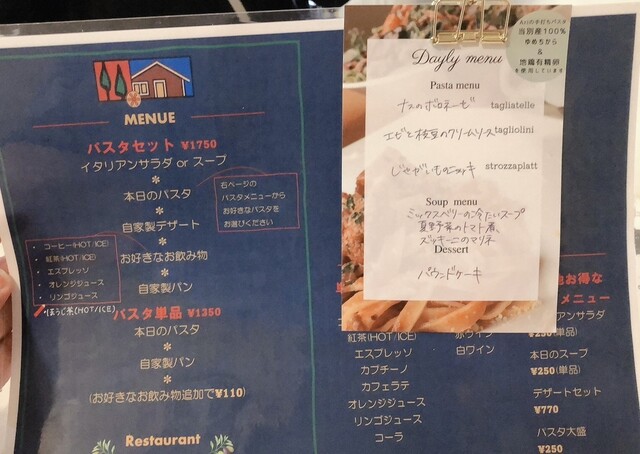 MENUE
パスタセット ¥1750
イタリアンサラダ or スープ
*
本日のパスタ
*
自家製デザート
*
お好きなお飲み物
*
自家製パン
右ページの
パスタメニューから
お好きなパスタを
お選びください
・ コーヒー(HOT/ICE)
・ 紅茶(HOT/ICE)
・ エスプレッソ
・ オレンジジュース
・ リンゴジュース
ほうじ茶(HOT/ICE)
パスタ単品 ¥1350
本日のパスタ
*
自家製パン
*
(お好きなお飲み物追加で¥110)
Restaurant
当別産100%
ゆめちから
&
地鶏有精卵
を使用しています
Dayly menu
Pasta menu
ナスのボロネーゼ tagliatelle
エビと枝豆のクリームソース tagliolini
じゃがいものニョッキ strozzaplatt
Soup menu
ミックスベリーの冷たいスープ
夏野菜のトマト煮
ズッキーニのマリネ
Dessert
パウンドケーキ
紅茶(HOT/ICE)
エスプレッソ
カプチーノ
カフェラテ
オレンジジュース
リンゴジュース
コーラ
赤ワイン
白ワイン
お得な
メニュー
¥250(単品)
本日のスープ
¥250(単品)
デザートセット
¥770
パスタ大盛
¥250